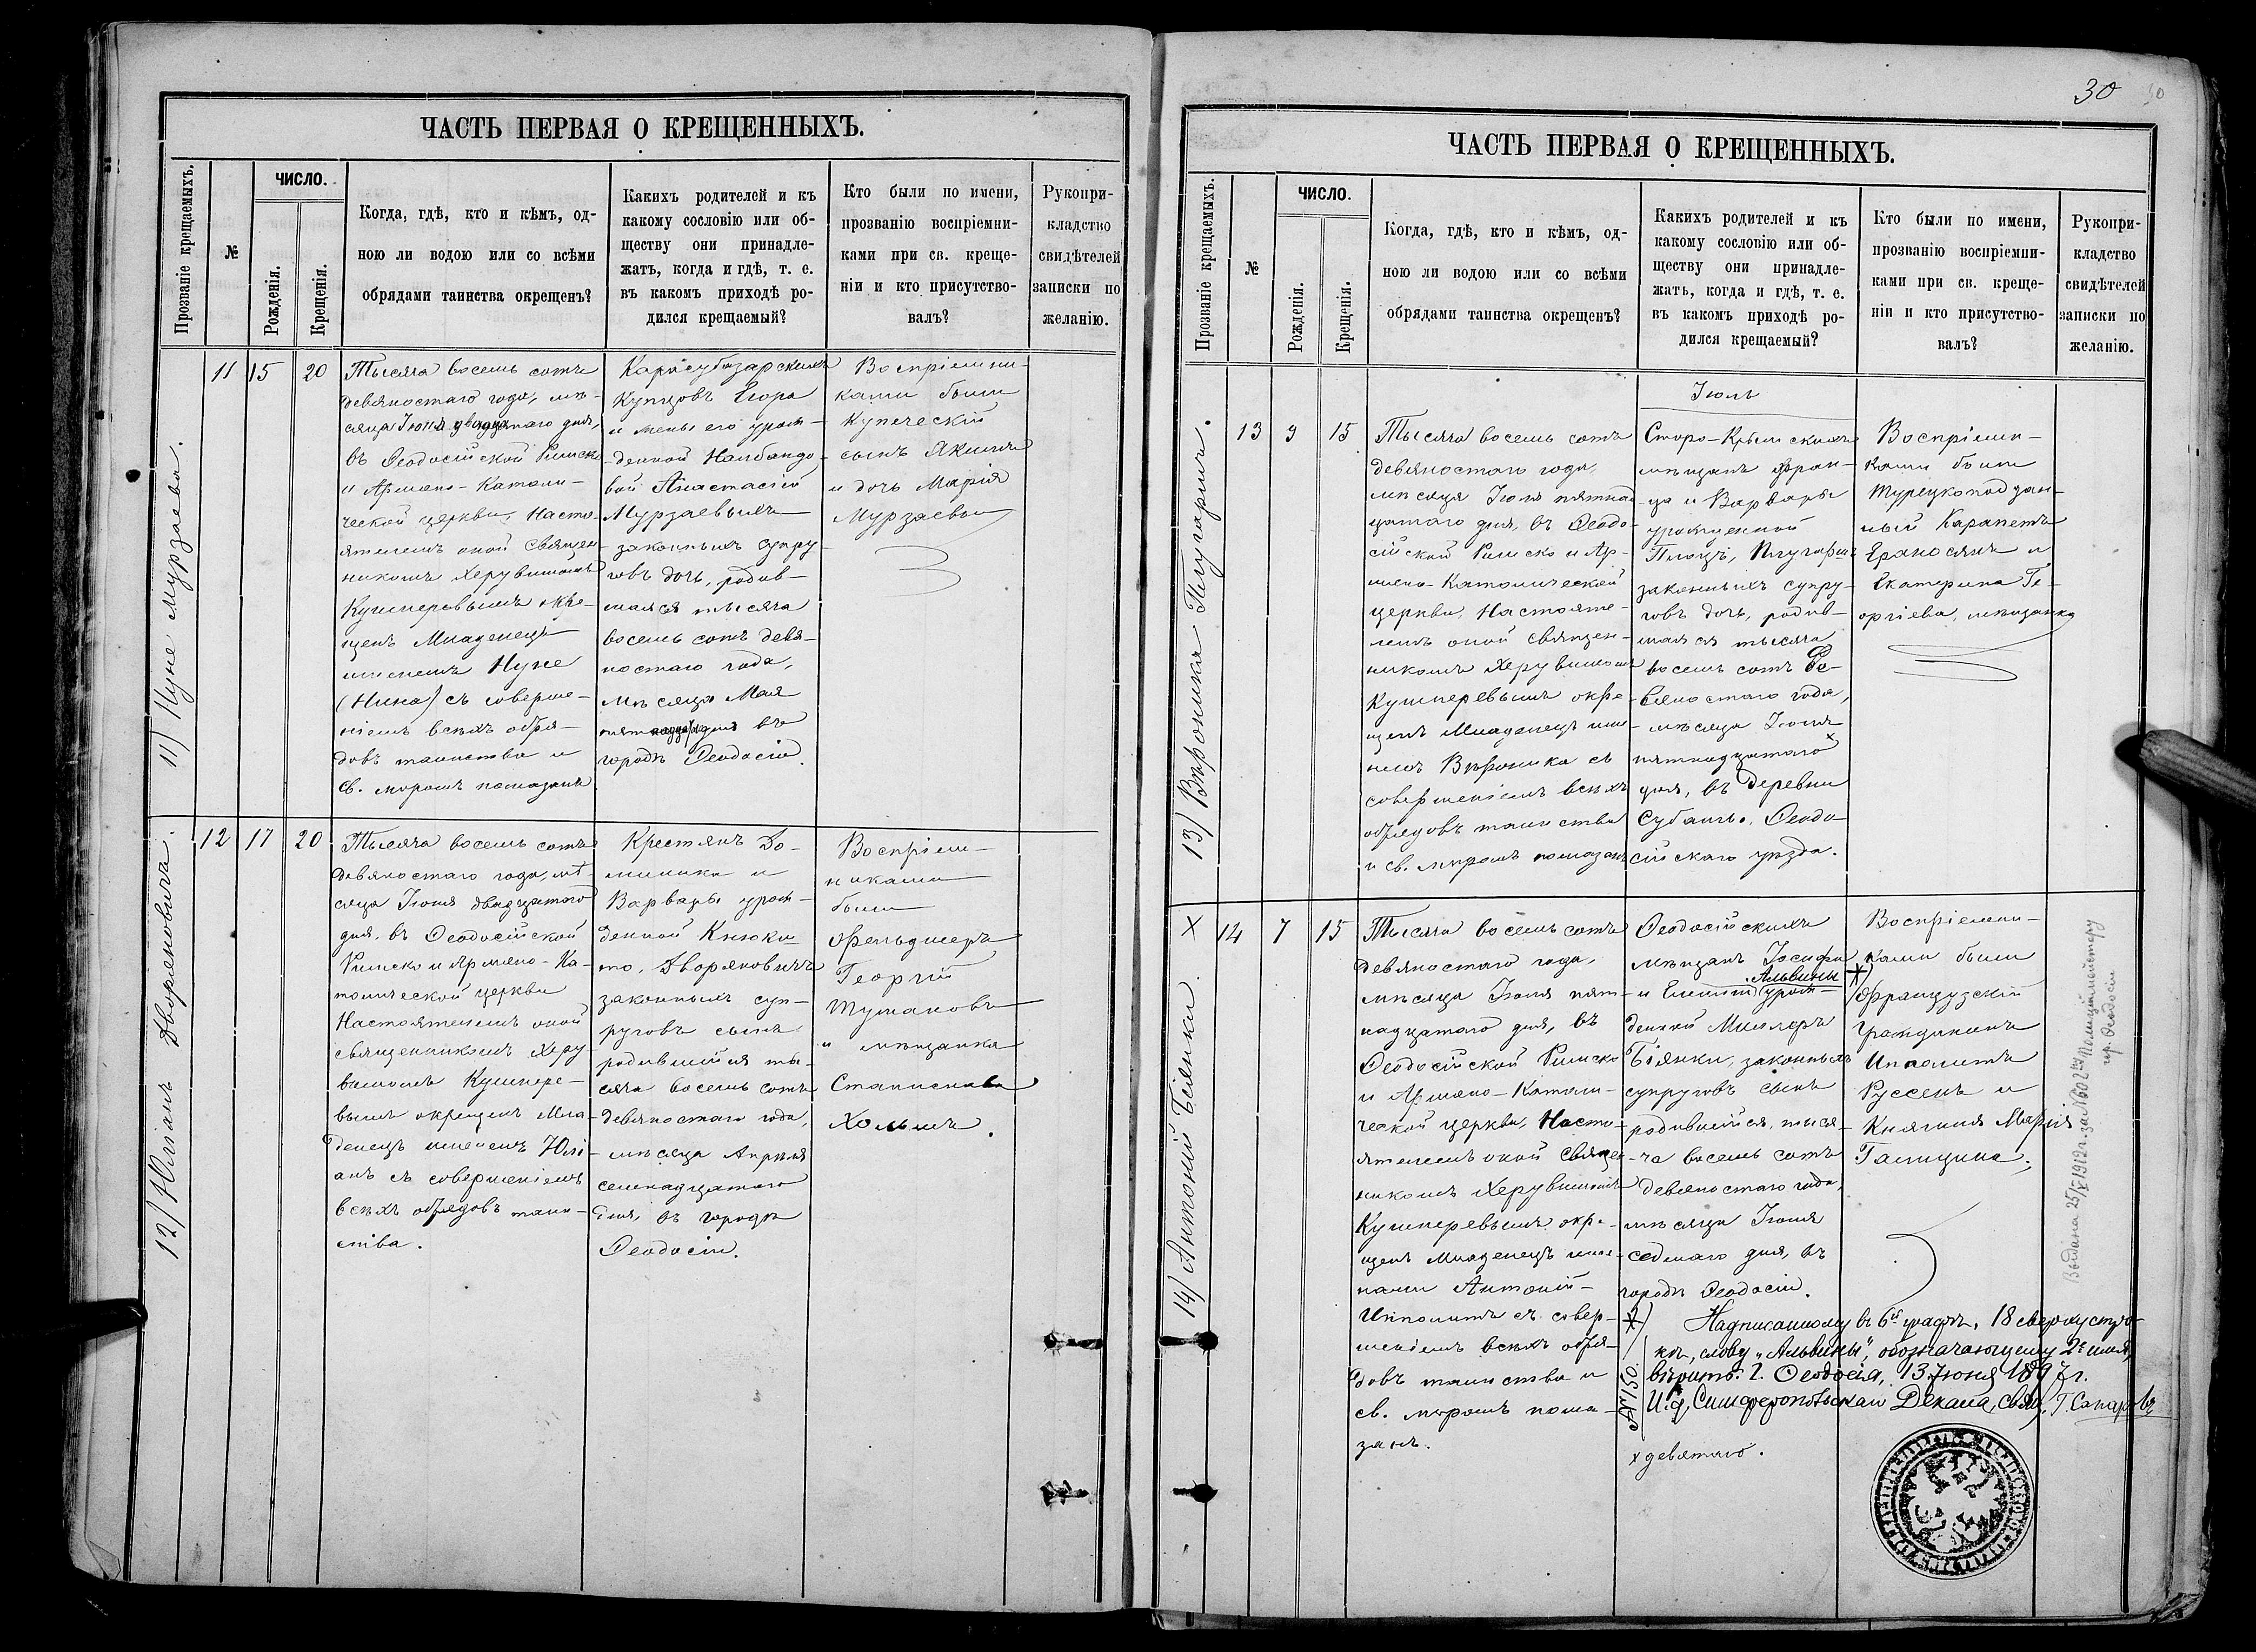 ЧАСТЬ ПЕРВАЯ О КРЕЩЕННЫХЪ.
Прозваніе крещаемыхъ.
№
ЧИСЛО.
Рожденія.
Крещенія.
Когда, гдѣ, кто и кѣмъ, од-
ною ли водою или со всѣми
обрядами таинства окрещенъ?
Какихъ родителей и къ
какому сословію или об-
ществу они принадле-
жатъ, когда и гдѣ, т. е.
въ какомъ приходѣ ро-
дился крещаемый?
Кто были по имени,
прозванію воспріемни-
ками при св. креще-
ніи и кто присутство-
валъ?
Рукопри-
кладство
свидѣтелей
записки по
желанію.
11) Нуне Мурзаева.
11 15 20
Тысяча восемь сотъ
девяностаго года, мѣ-
сяца Іюня двадцатаго дня,
въ Ѳеодосійской Римско
и Армяно-Католи-
ческой церкви, Насто-
ятелемъ оной Священ-
никомъ Херувимомъ
Кушнеревымъ окре-
щенъ Младенецъ
именемъ Нуне
(Нина) съ соверше-
ніемъ всѣхъ обря-
довъ таинства и
Св. мѵромъ помазанъ
Карасубазарскихъ
Купцовъ Егора
и жены его урож-
денной Налбандо-
вой Анастасіи
Мурзаевыхъ
законныхъ супру-
говъ дочь, родив-
шаяся тысяча
восемь сотъ девя-
ностаго года,
мѣсяца Мая
пятнадцатаго дня въ
городѣ Ѳеодосіи.
Воспріемни-
ками были
Купеческій
сынъ Якимъ
и дочь Марія
Мурзаевы
12) Юліанъ Дворяновича.
12 17 20
Тысяча восемь сотъ
девяностаго года, мѣ-
сяца Іюня двадцатаго
дня, въ Ѳеодосійской
Римско и Армяно-Ка-
толической церкви
Настоятелемъ оной
священникомъ Херу-
вимомъ Кушнере-
вымъ окрещенъ Мла-
денецъ именемъ Юлі-
анъ съ совершеніемъ
всѣхъ обрядовъ таин-
ства.
Крестянъ До-
миника и
Варвары урож-
денной Кнюки
то, Дворяновичъ
законныхъ суп-
руговъ сынъ
родившійся ты-
сяча восемь сотъ
девяностаго года,
мѣсяца Апрѣля
семнадцатаго
дня, въ городѣ
Ѳеодосіи.
Воспріем-
никами
были
Фельдшеръ
Георгій
Тумановъ
и мѣщанка
Станислава
Хольмъ.
30 30
ЧАСТЬ ПЕРВАЯ О КРЕЩЕННЫХЪ.
Прозваніе крещаемыхъ.
№
ЧИСЛО.
Рожденія.
Крещенія.
Когда, гдѣ, кто и кѣмъ, од-
ною ли водою или со всѣми
обрядами таинства окрещенъ?
Какихъ родителей и къ
какому сословію или об-
ществу они принадле-
жатъ, когда и гдѣ, т. е.
въ какомъ приходѣ ро-
дился крещаемый?
Кто были по имени,
прозванію воспріемни-
ками при св. креще-
ніи и кто присутство-
валъ?
Рукопри-
кладство
свидѣтелей
записки по
желанію.
Іюль
13) Вѣроника Плугаришъ.
13 9 15
Тысяча восемь сотъ
девяностаго года,
мѣсяца Іюля пятнад-
цатаго дня, въ Ѳеодо-
сійской Римско и Ар-
мяно-Католической
церкви, Настояте-
лемъ оной священ-
никомъ Херувимомъ
Кушнеревымъ окре-
щенъ Младенецъ име-
немъ Вѣроника съ
совершеніемъ всѣхъ
обрядовъ таинства
и св. мѵромъ помазанъ
Старо-Крымскихъ
мѣщанъ Фран-
ца и Варвары
урожденной
Плоцъ, Плугаришъ
законныхъ супру-
говъ дочь, родив-
шаяся тысяча
восемь сотъ де-
вяностаго года,
мѣсяца Іюня
пятнадцатаго х
дня, въ деревни
Субашъ, Ѳеодо-
сійскаго уѣзда.
Воспріемни-
ками были
Турецкоподдан-
ный Карапетъ
Ераносянъ и
Екатерина Ге-
оргіева, мѣщанка
14) Антоній Біянки.
х 14 7 15
Тысяча восемь сотъ
девяностаго года,
мѣсяца Іюля пят-
надцатаго дня, въ
Ѳеодосійской Римско
и Армяно-Католи-
ческой церкви, Насто-
ятелемъ оной Священ-
никомъ Херувимомъ
Кушнеревымъ окре-
щенъ Младенецъ име-
нами Антоній-
Ипполитъ съ совер-
шеніемъ всѣхъ обря-
довъ таинства и
св. мѵромъ пома-
занъ.
Ѳеодосійскихъ
мѣщанъ Іосифа
Альвины
и Емиліи урож-
денной Миллеръ
Біянки, законныхъ
супруговъ сынъ
родившійся, тыся-
ча восемь сотъ
девяностаго года,
мѣсяца Іюня
седьмаго дня, въ
городѣ Ѳеодосіи.
Воспріемни-
ками были
Французскій
гражданинъ
Иполитъ
Руссенъ и
Княгиня Марія
Галицина.
Выдана 25/X 1912 г. за № 602 Полицмейстеру
гор. Ѳеодосіи
Надписанному въ 6й графѣ, 18 сверху стро-
кѣ, слову „Альвины", обозначающему 2е имя,
вѣрить. Г. Ѳеодосія, 13 Іюня 1897 г.
И. д. Симферопольскаго Декана, Свящ.
№ 150.
х девятаго.